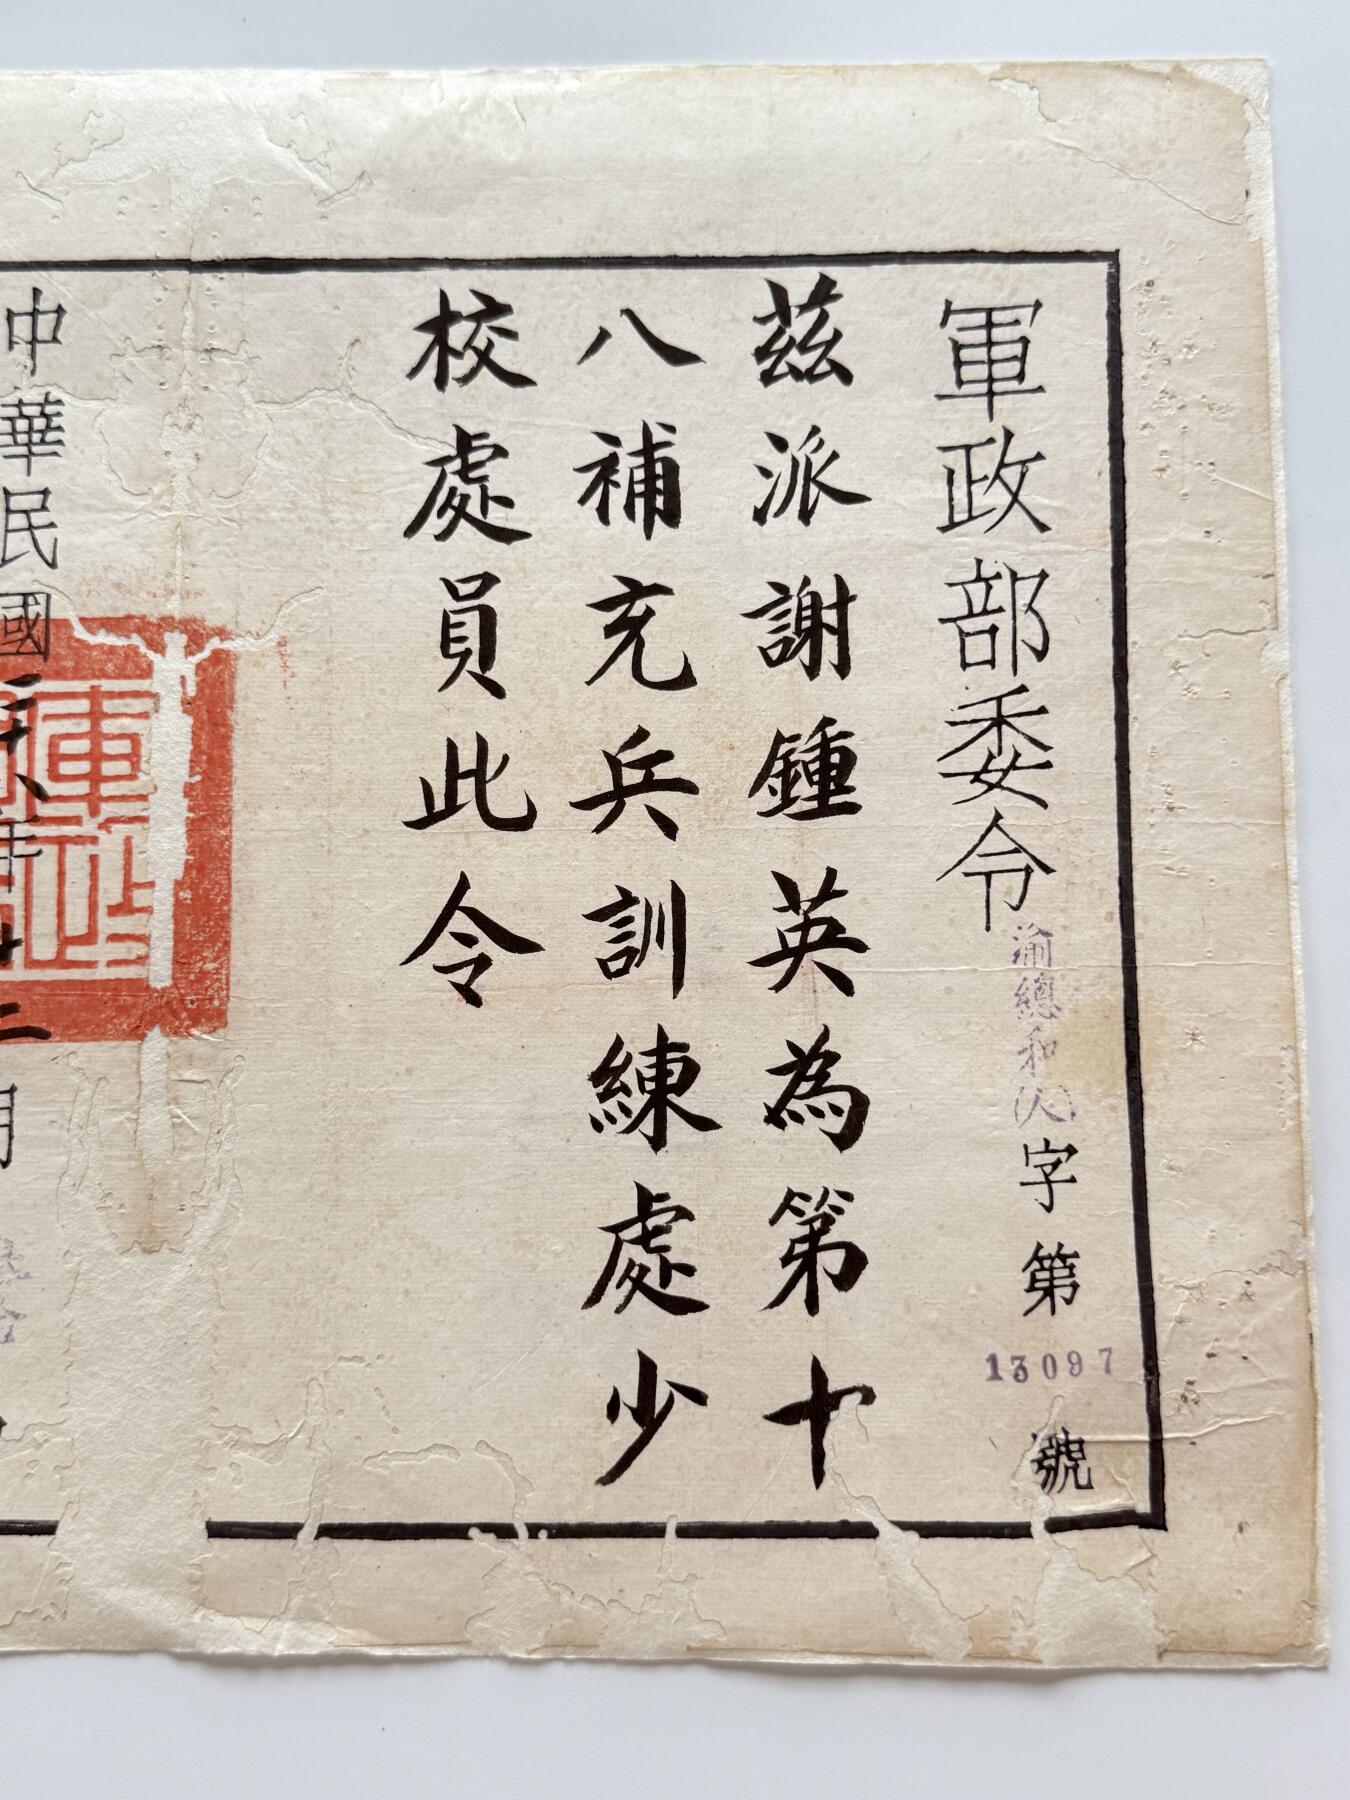 軍政部委令渝總和(人)字第13097號
茲派謝鍾英為第十
八補充兵訓練處少
校處員此令
中華民國二十八年十二月